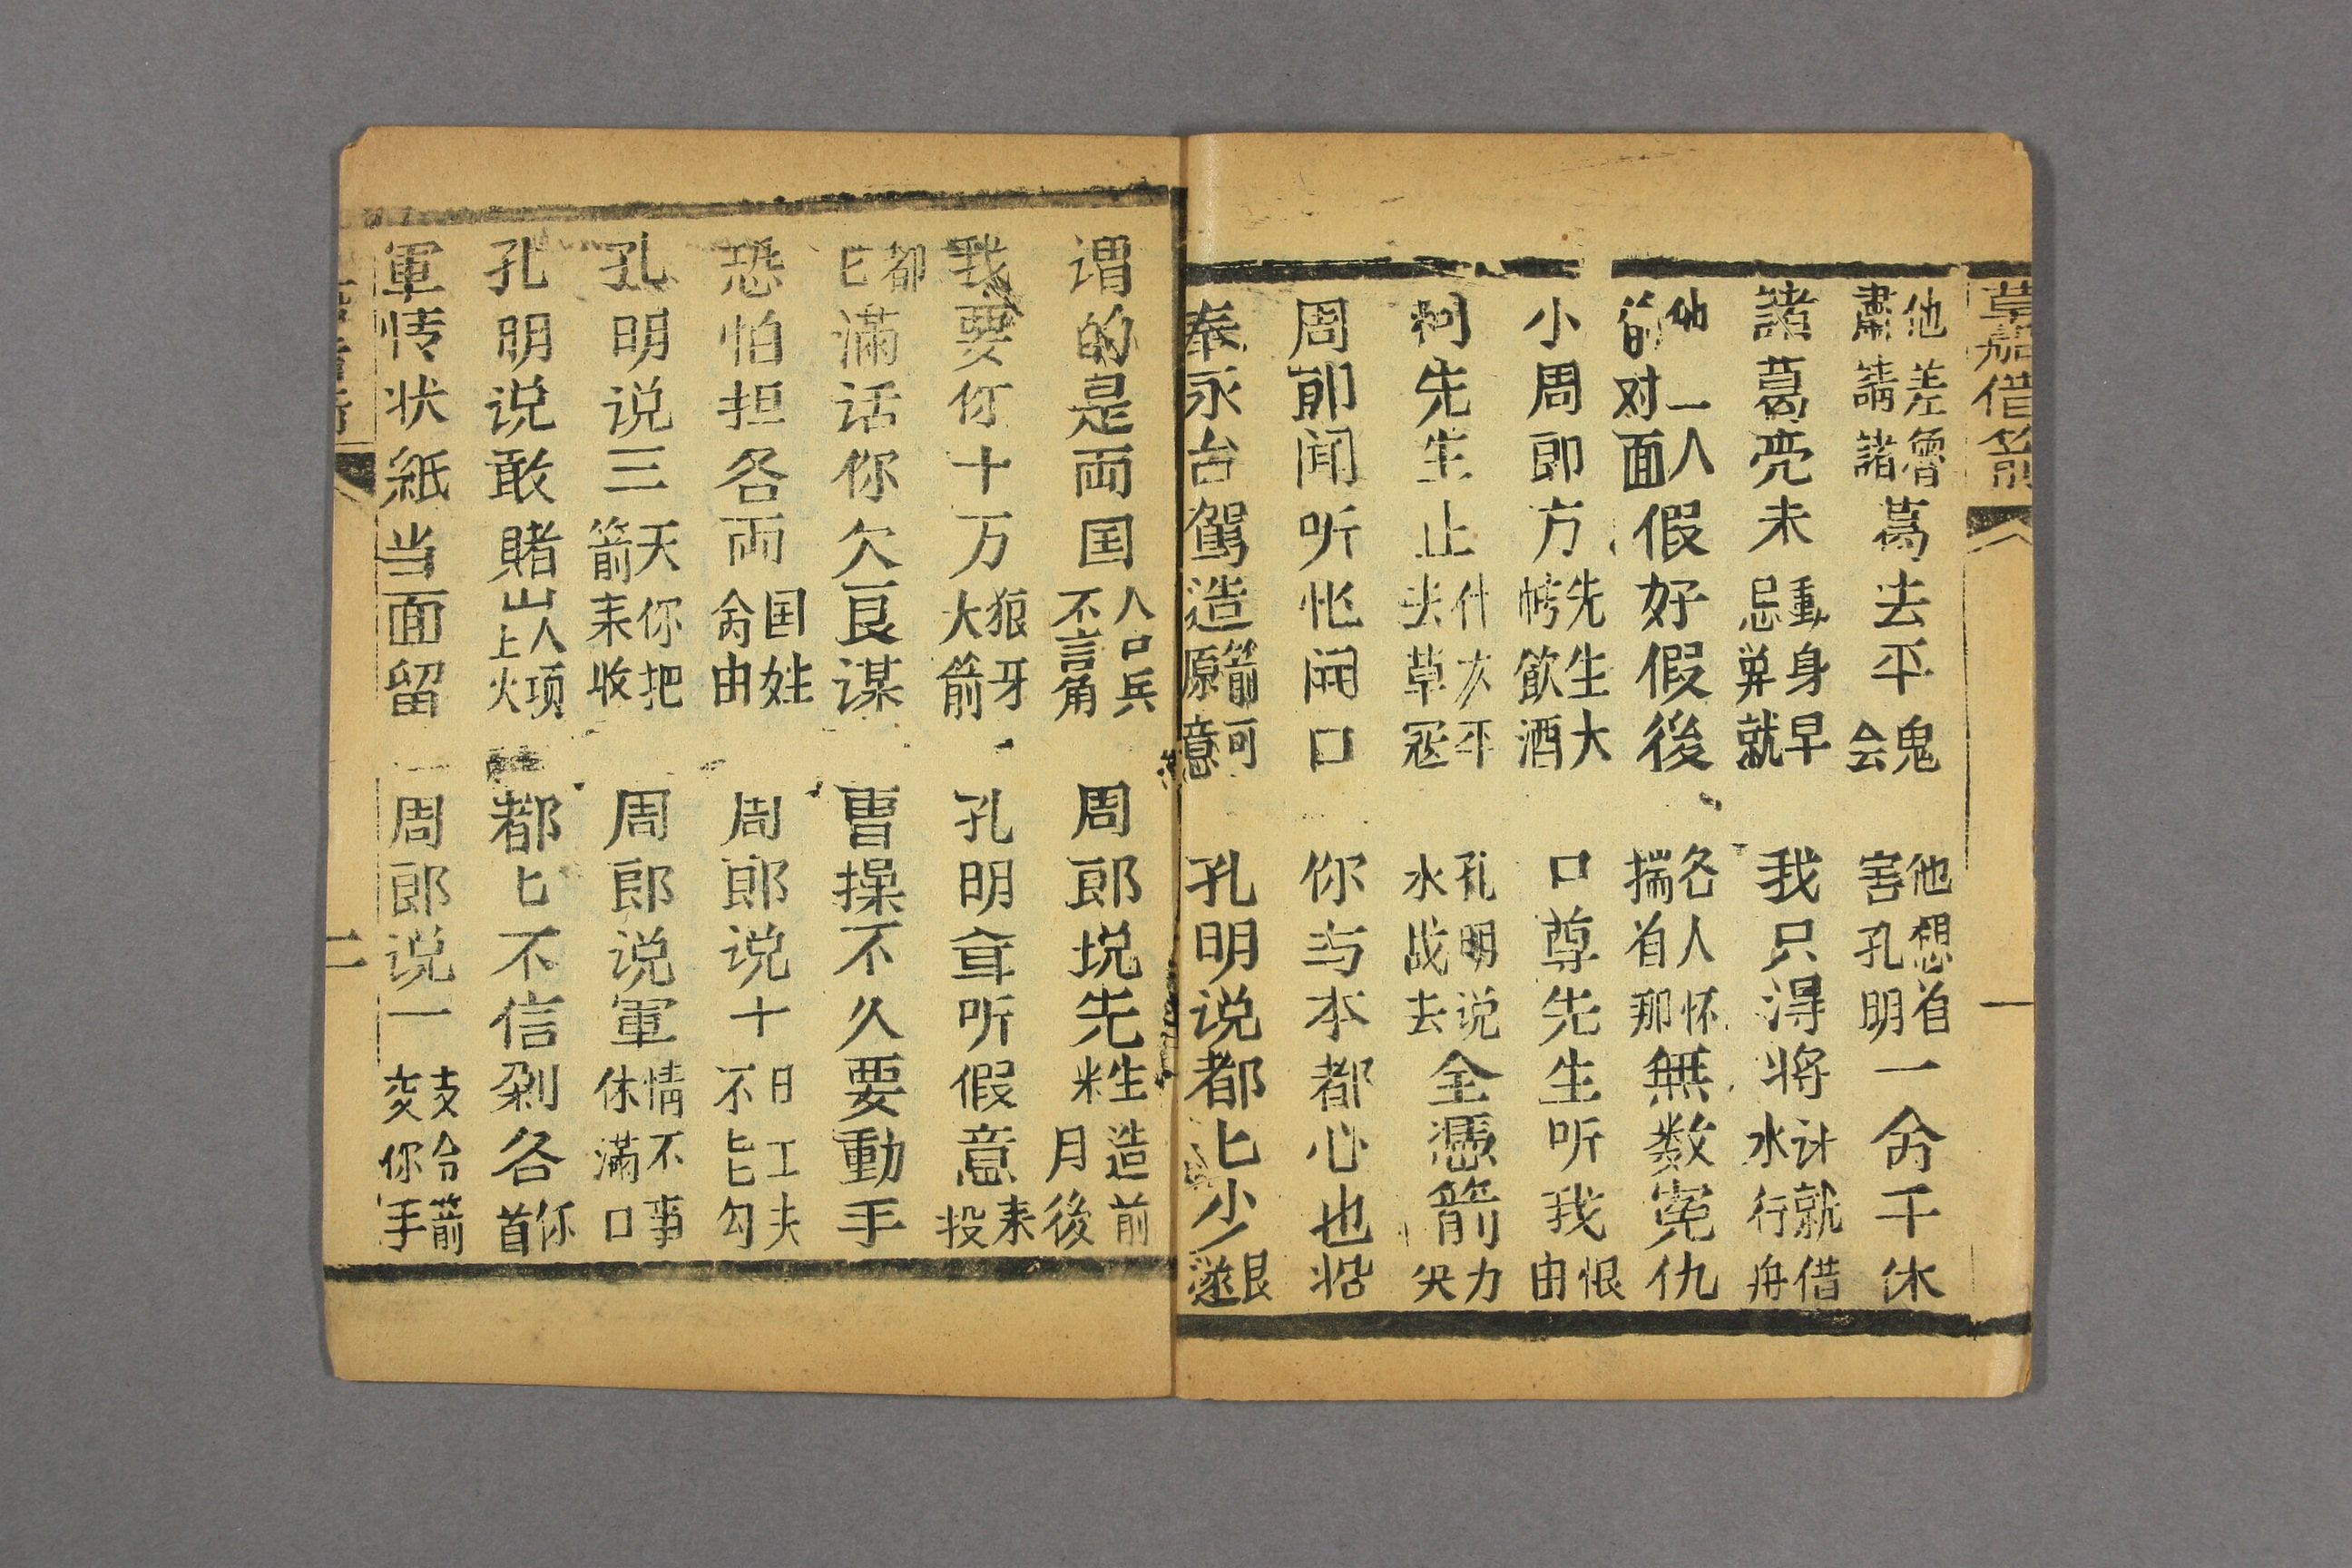 草船借箭
一
他差魯肅請諸葛去平鬼会
他想自害孔明一命干休
諸葛亮未動身早忌算就
我只得将计就借水行舟
他一人對面假好假後
各人怀揣自那無数冤仇
小周郎方先生大帳飲酒
口尊先生听我恨由
問先生止什么平头草冦
孔明说水战去全憑箭力头
周郎闻听忙闹口
你与本都心也
奉永台駕造箭可原意
孔明说都匕少
谓的是両国人口兵不言角
周郎说先生造前月後
我要你十万狼牙大箭
孔明听假意来投
都匕滿话你欠良谋
曹操不久要動手
恐怕担各両国姓命由
周郎说十日工夫不勾
孔明说三天你把箭来收
周郎说軍情不事休滿口
孔明说敢賭山人项上火
都匕不信剁各你首
軍情状紙当面留
周郎说一支令箭交你手
二